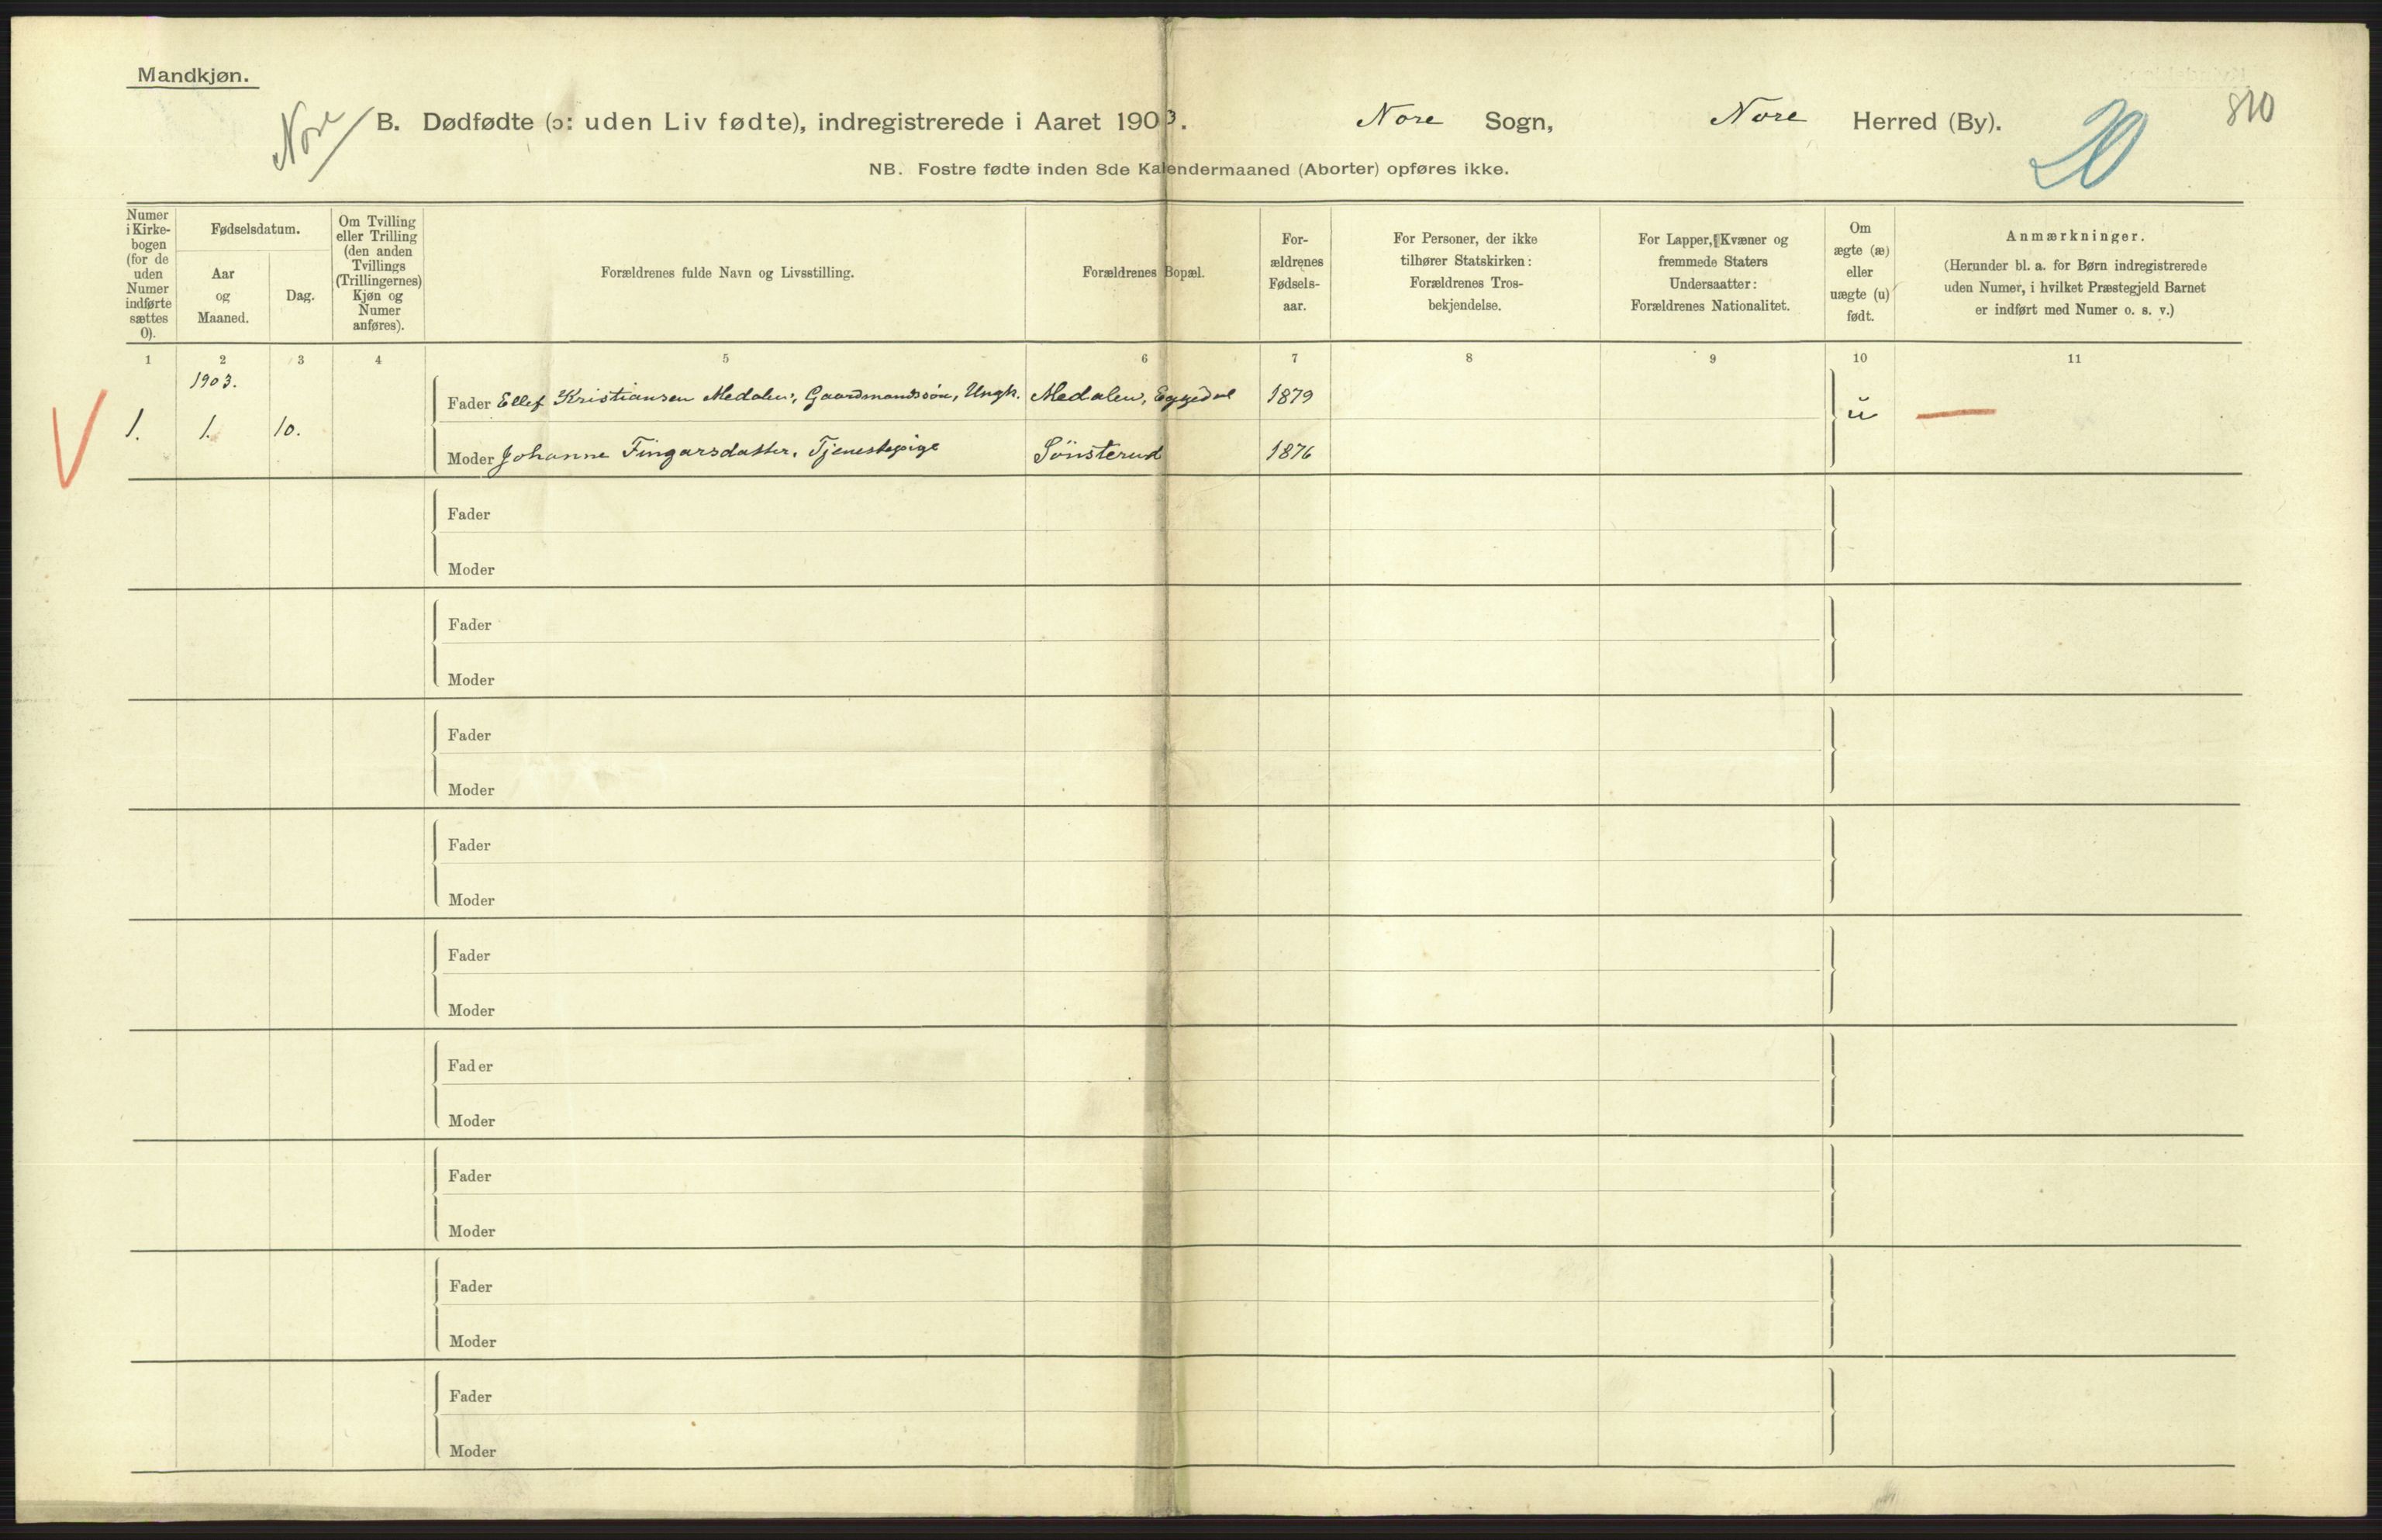 Mandkjøn.
Nore
B. Dødfødte (ɔ: uden Liv fødte), indregistrerede i Aaret 1903. Nore Sogn, Nore Herred (By).
20
810
NB. Fostre fødte inden 8de Kalendermaaned (Aborter) opføres ikke.
Numer
i Kirke-
bogen
(for de
uden
Numer
indførte
sættes
0).
Fødselsdatum.
Aar
og
Maaned.
Dag.
Om Tvilling
eller Trilling
(den anden
Tvillings
(Trillingernes)
Kjøn og
Numer
anføres).
Forældrenes fulde Navn og Livsstilling.
Forældrenes Bopæl.
For-
ældrenes
Fødsels-
aar.
For Personer, der ikke
tilhører Statskirken:
Forældrenes Tros-
bekjendelse.
For Lapper, Kvæner og
fremmede Staters
Undersaatter:
Forældrenes Nationalitet.
Om
ægte (æ)
eller
uægte (u)
født.
Anmærkninger.
(Herunder bl. a. for Børn indregistrerede
uden Numer, i hvilket Præstegjeld Barnet
er indført med Numer o. s. v.)
1 2 3 4 5 6 7 8 9 10 11
1903.
Fader Ellef Kristiansen Medalen, Gaardmandssön, Ungk. Medalen, Eggedal 1879
1. 1. 10. u —
Moder Johanne Fingarsdatter, Tjenestepige Sönsterud 1876
Fader
Moder
Fader
Moder
Fader
Moder
Fader
Moder
Fader
Moder
Fader
Moder
Fader
Moder
Fader
Moder
Fader
Moder